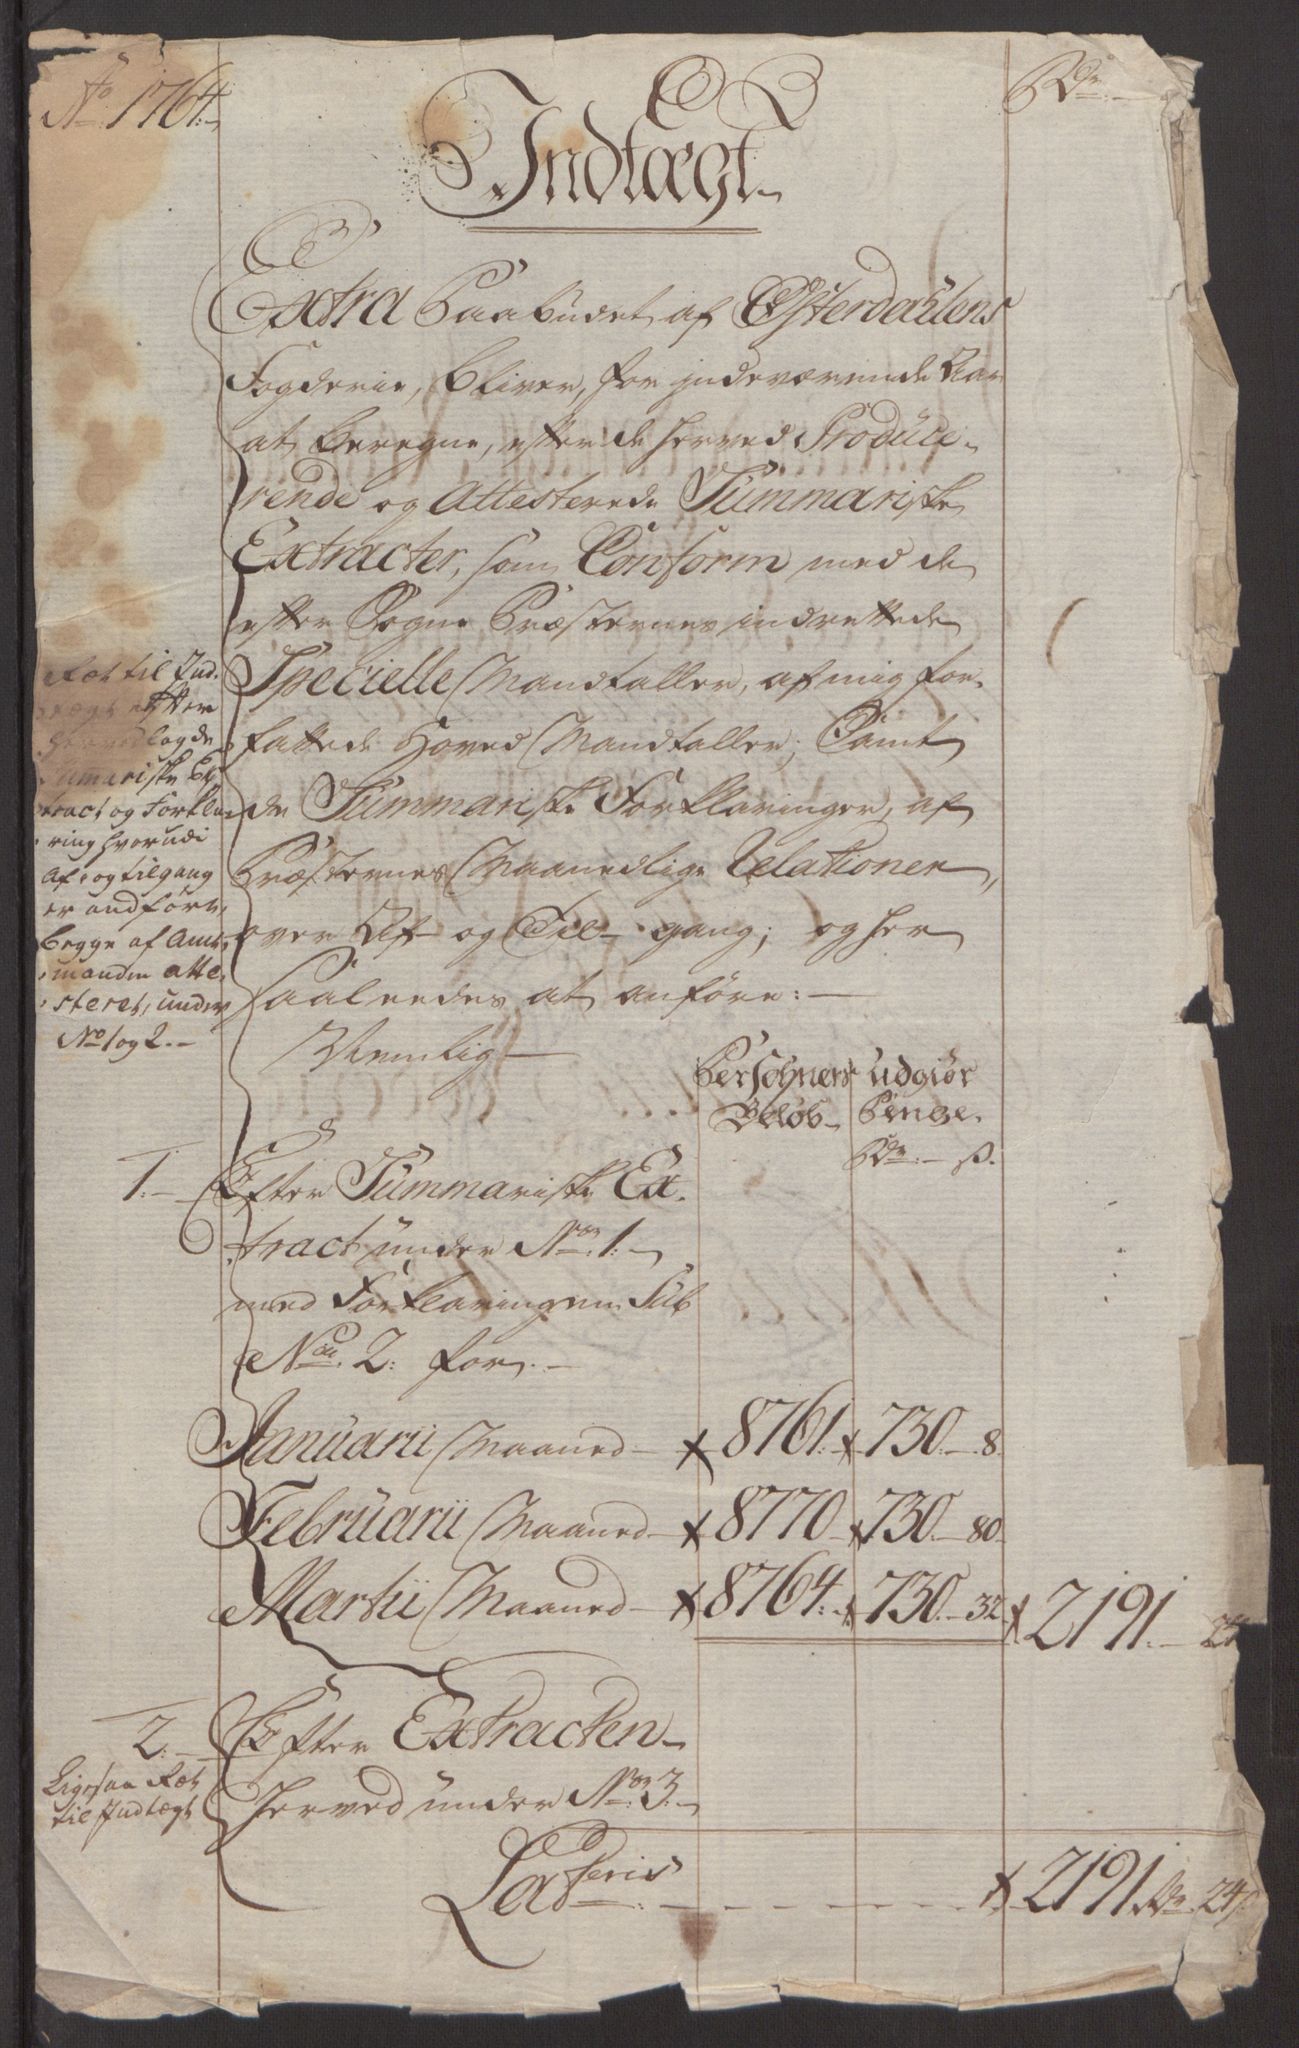 Ao 1764.
Rdr.
Indtægt
Extra Paabudet af Østerdahlens
Fogderie, bliver, for indeværende Aar
at beregne, efter de herved Produce-
rende og Attesterede Summariske
Extracter, som Conform med de
efter Sogne Præsternes indrettede
Specielle Mandtaller, af mig for-
fattede Hoved Mandtaller; Samt
de Summariske Forklaringer, af
Præsternes Maanedlige Relationer,
over Af- og Til-gang; og her
saaledes at anføre:
Nemlig
Ret til Ind-
tægt efter
herved lagde
Sumariske Ex-
tract og Forkla-
ring hvorudi
Af- og tilgang
er andført,
begge af Amt-
manden atte-
steret, under
No 1 og 2.
Persohners udgiør
Beløb Penge.
Rdr. ß.
1. Efter Summariske Ex-
tract under No. 1.
med Forklaringen Sub
No. 2: for.
Januarii Maaned 8761. 730. 8.
Februarii Maaned 8770 730. 80.
Martii Maaned 8764. 730. 32 2191. 24
2. Efter Extracten
herved under No. 3.
Ligesaa Ret
til Indtægt
Lateris 2191 Rdr. 24 ß